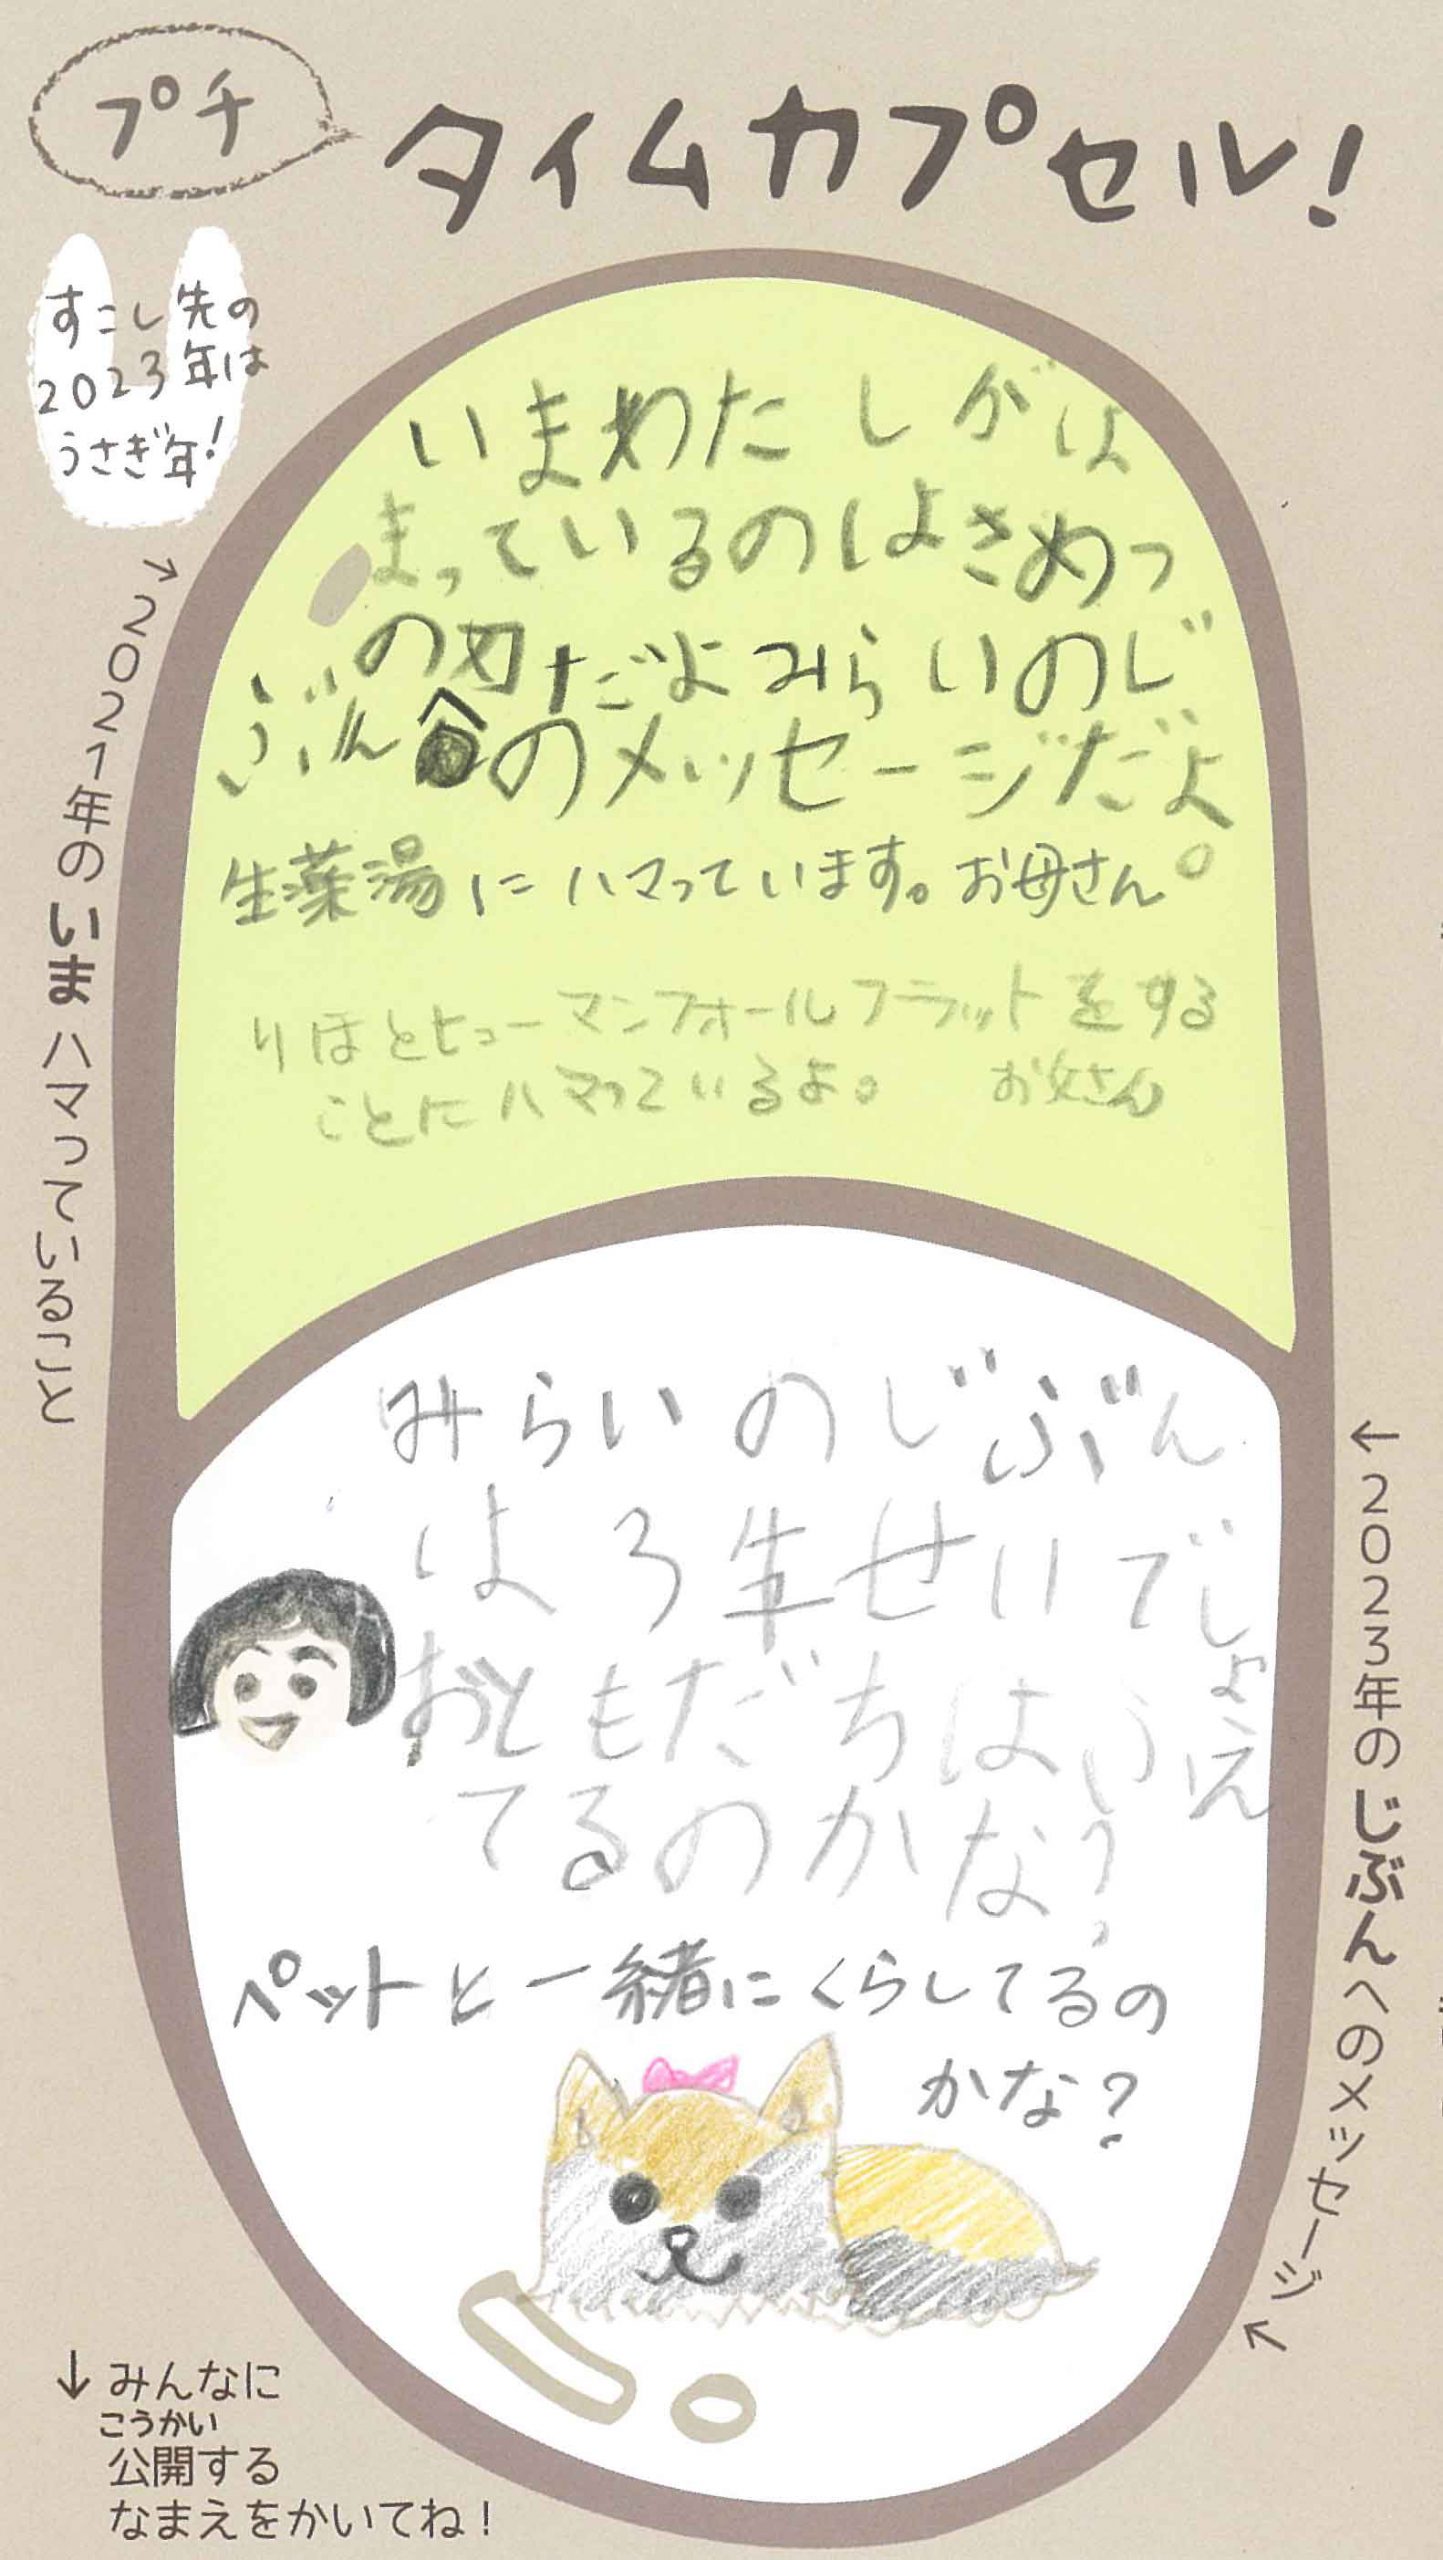 プチ
タイムカプセル!
すこし先の
2023年は
うさぎ年!
→2021年のいまハマっていること
いまわたしがは
まっているのはきめつ
の刃だよみらいのじ
ぶんへのメッセージだよ。
生薬湯にハマっています。お母さん
りほとヒューマンフォールフラットをする
ことにハマっているよ。 お父さん
←2023年のじぶんへのメッセージ↖
みらいのじぶん
は3年せいでしょ
おともだちはふえ
てるのかな?
ペットと一緒にくらしてるの
かな?
↓みんなに
こうかい
公開する
なまえをかいてね!